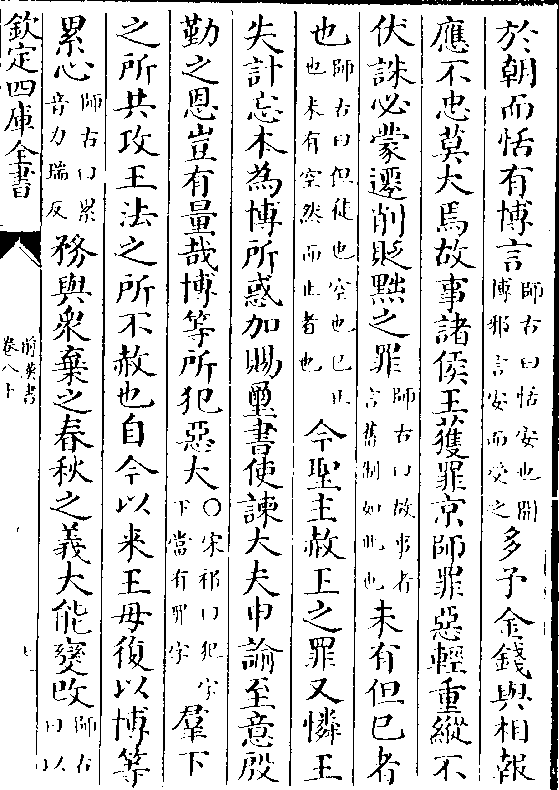 於朝而恬有博言師古曰恬安也聞博邪言安而受之多予金錢與相報
應不忠莫大焉故事諸侯王獲罪京師罪惡輕重縱不
伏誅必蒙遷削貶黜之罪師古曰故事者言舊制如此也未有但已者
也師古曰但徒也空也已止也未有空然而止者也今聖主赦王之罪又憐王
失計忘本為博所惑加賜璽書使諫大夫申諭至意殷
勤之恩豈有量哉博等所犯惡大○宋祁曰犯字下當有罪字羣下
之所共攻王法之所不赦也自今以来王毋復以博等
累心師古曰累音力瑞反務與衆棄之春秋之義大能變改師古曰
欽定四庫全書
前漢書
卷八十